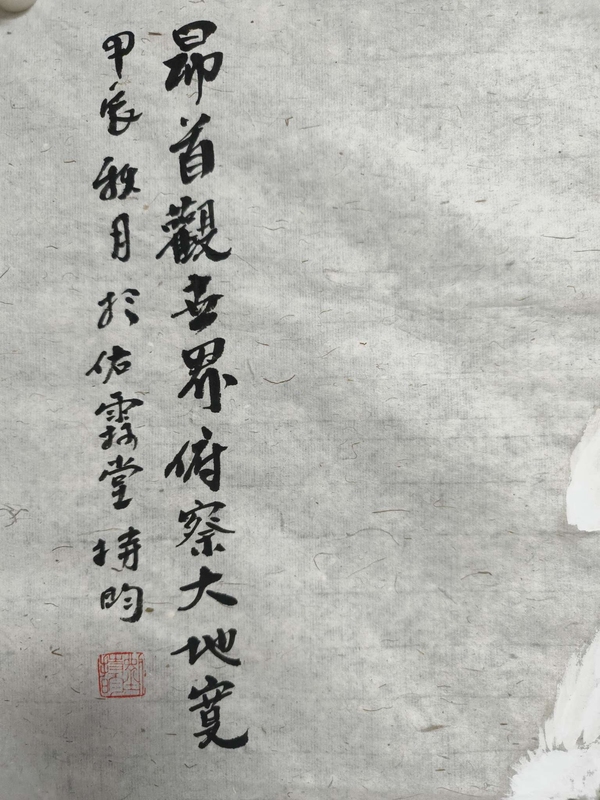 昂首觀世界俯察大地寬
甲辰秋月於佑霖堂掎昀